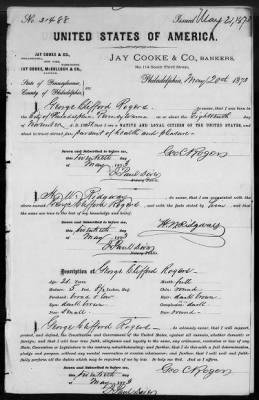 No. 31488 Issued May 21, 1873
UNITED STATES OF AMERICA.
JAY COOKE & CO.
JAY COOKE, McCULLOCH & CO.
JAY COOKE & CO., BANKERS,
No. 114 South Third Street,
Philadelphia, May 20th 1873
State of Pennsylvania,
County of Philadelphia,
I George Clifford Rogers do swear, that I was born in the
City of Philadelphia Pennsylvania on or about the Eighteenth day
of that I am a NATIVE AND LOYAL CITIZEN OF THE UNITED STATES, and about
to travel abroad for pursuit of health and pleasure
Sworn and Subscribed before me, this
twentieth day of
May 1873
Geo C Rogers
Notary Public
I, W Ridgway do swear, that I am acquainted with the
above named George Clifford Rogers and with the facts stated by him and that the same
are true to the best of my knowledge and belief.
Sworn and Subscribed before me, this
twentieth day of
May 1873
Notary Public
Description of George Clifford Rogers
Age 21 Years
Mouth full
Chin round
Hair dark brown
Complexion dark
Face round
Eyes dark brown
Nose small
I George Clifford Rogers do solemnly swear, that I will support,
protect, and defend the Constitution and Government of the United States, against all enemies, whether domestic or
foreign; and that I will bear true faith, allegiance and loyalty to the same, any ordinance, resolution or law of any
State, Convention or Legislature to the contrary notwithstanding; and further, that I do this with a full determination,
pledge and purpose, without any mental reservation or evasion whatsoever; and further, that I will well and faithfully
perform all the duties which may be required of me by law. So help me God.
Sworn and Subscribed before me, this
twentieth day of
May 1873
Geo C Rogers
Notary Public